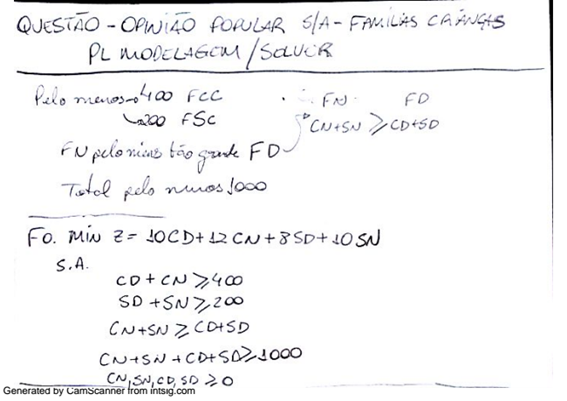 QUESTÃO - OPINIÃO POPULAR S/A - FAMÍLIAS CRIANÇAS
PL MODELAGEM / SOLVER
Pelo menos → 400 FCC
→ 200 FSC
FN FD
CN+SN ≥ CD+SD
FN pelo menos tão grande FD
Total pelo menos 1000
FO. MIN Z = 10CD + 12CN + 8SD + 10SN
S.A.
CD + CN ≥ 400
SD + SN ≥ 200
CN + SN ≥ CD + SD
CN + SN + CD + SD ≥ 1000
CN, SN, CD, SD ≥ 0
Generated by CamScanner from intsig.com